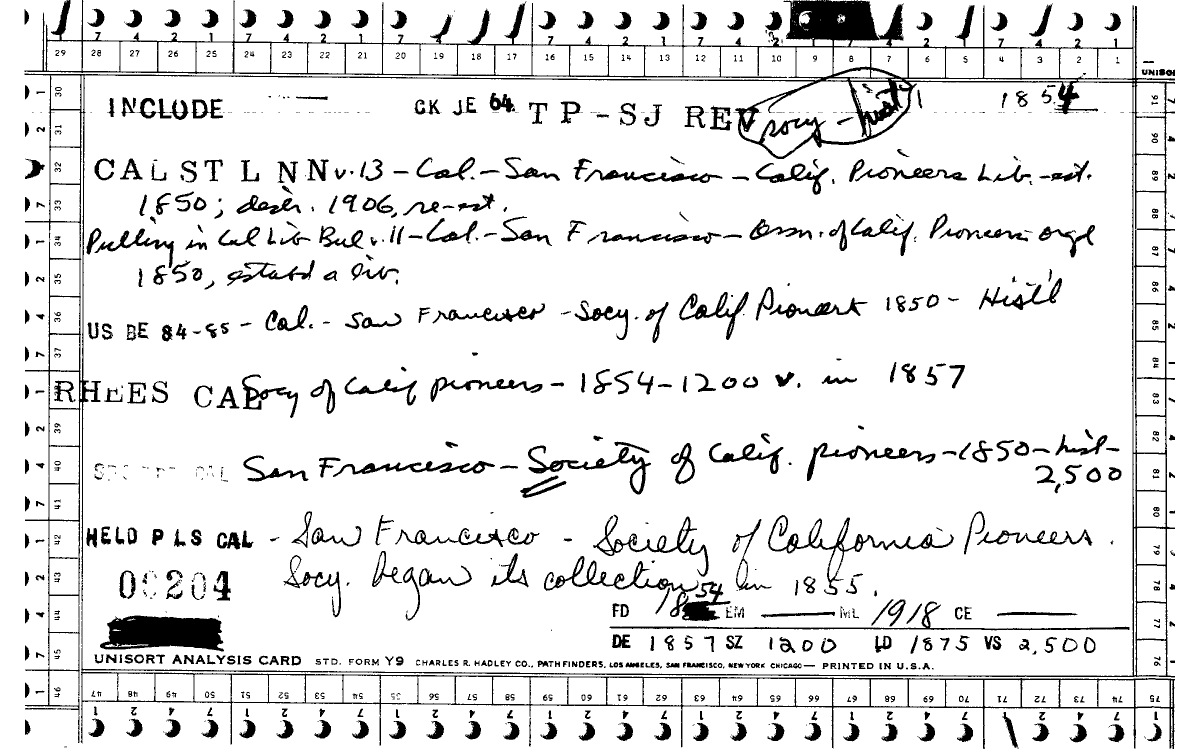 7 4 2 1 7 4 2 1 7 4 2 1 7 4 2 1 7 4 2 1 7 4 2 1 7 4 2 1
29 28 27 26 25 24 23 22 21 20 19 18 17 16 15 14 13 12 11 10 9 8 7 6 5 4 3 2 1
UNISO
INCLUDE CK JE 64 TP-SJ REV socy - hist'l 1854
CAL ST L NN v.13 - Cal. - San Francisco - Calif. Pioneers Lib. - est.
1850; destr. 1906, re-est.
Pulling in Cal Lib Bul v.11 - Cal. - San Francisco - Assn. of Calif. Pioneers orgd
1850, estabd a lib.
US BE 84-85 - Cal. - San Francisco - Socy. of Calif. Pioneers 1850 - Hist'l
RHEES CAL Socy of Calif pioneers - 1854 - 1200 v. in 1857
CAL San Francisco - Society of Calif. pioneers - 1850 - hist -
2,500
HELD P LS CAL - San Francisco - Society of California Pioneers.
Socy. began its collection in 1855.
00204
FD 1854 EM —— ML 1918 CE ——
DE 1857 SZ 1200 LD 1875 VS 2,500
UNISORT ANALYSIS CARD STD. FORM Y9 CHARLES R. HADLEY CO., PATHFINDERS, LOS ANGELES, SAN FRANCISCO, NEW YORK CHICAGO — PRINTED IN U.S.A.
46 47 48 49 50 51 52 53 54 55 56 57 58 59 60 61 62 63 64 65 66 67 68 69 70 71 72 73 74 75
1 2 4 7 1 2 4 7 1 2 4 7 1 2 4 7 1 2 4 7 1 2 4 7 1 2 4 7 1